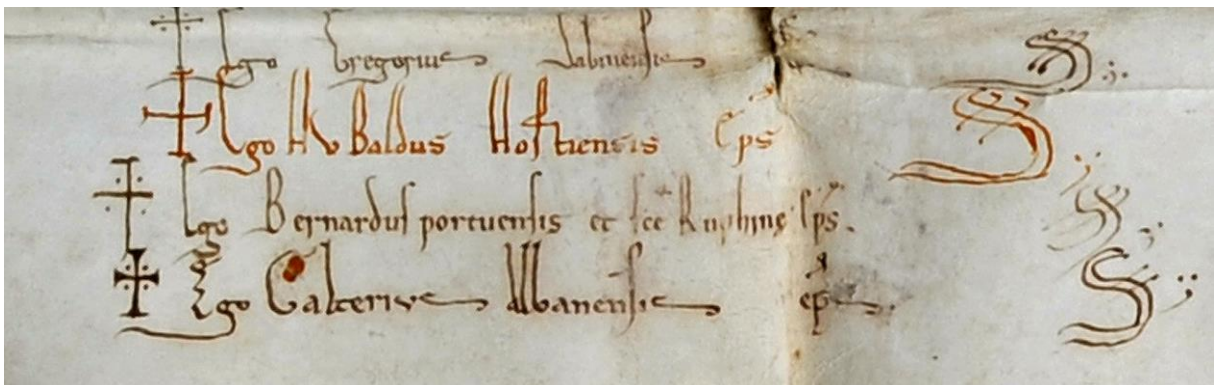 ✝ Ego Gregorius Sabinensis S
✝ Ego Hubaldus Hostiensis Eps S
✝ Ego Bernardus portuensis et sce Ruphine eps. S
✝ Ego Galterius Albanensis ep S